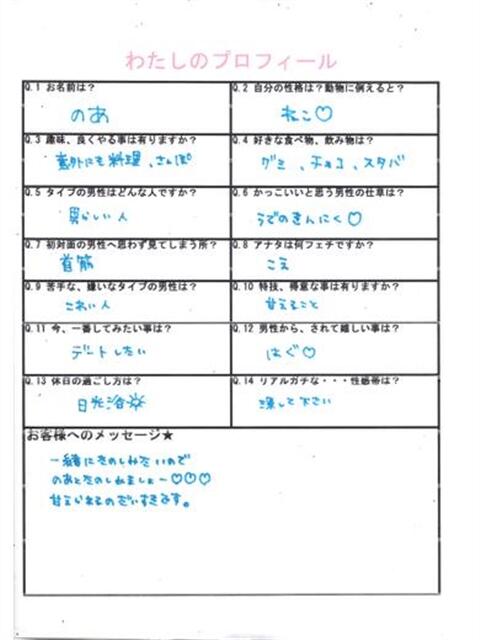 わたしのプロフィール
Q.1 お名前は?
のあ
Q.2 自分の性格は?動物に例えると?
ねこ♡
Q.3 趣味、良くやる事は有りますか?
意外にも料理、さんぽ
Q.4 好きな食べ物、飲み物は?
グミ、チョコ、スタバ
Q.5 タイプの男性はどんな人ですか?
男らしい人
Q.6 かっこいいと思う男性の仕草は?
うでのきんにく♡
Q.7 初対面の男性へ思わず見てしまう所?
首筋
Q.8 アナタは何フェチですか?
こえ
Q.9 苦手な、嫌いなタイプの男性は?
こわい人
Q.10 特技、得意な事は有りますか?
甘えること
Q.11 今、一番してみたい事は?
デートしたい
Q.12 男性から、されて嬉しい事は?
はぐ♡
Q.13 休日の過ごし方は?
日光浴☀
Q.14 リアルガチな・・・性感帯は?
して下さい
お客様へのメッセージ★
一緒にたのしみたいので
のあとたのしみましょー♡♡♡
甘えいれるのだいすきです。